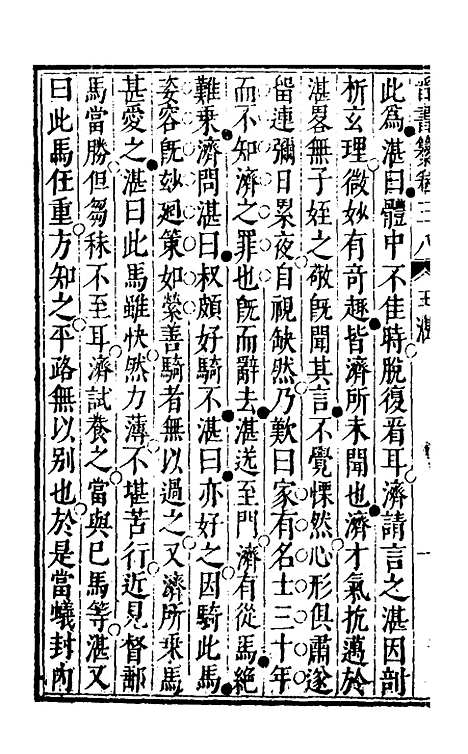 此為湛曰體中不佳時脫復看耳濟請言之湛因剖
析玄理微妙有奇趣皆濟所未聞也濟才氣抗邁於
湛畧無子姪之敬旣聞其言不覺慄然心形俱肅遂
留連彌日累夜自視缺然乃歎曰家有名士三十年
而不知濟之罪也旣而辭去湛送至門濟有從馬絶
難乗濟問湛曰叔頗好騎不湛曰亦好之因騎此馬
姿容旣妙𢌞策如縈善騎者無以過之又濟所乗馬
甚愛之湛曰此馬雖快然力薄不堪苦行近見督郵
馬當勝但芻秣不至耳濟試養之當與已馬等湛又
曰此馬任重方知之平路無以别也於是當蟻封内